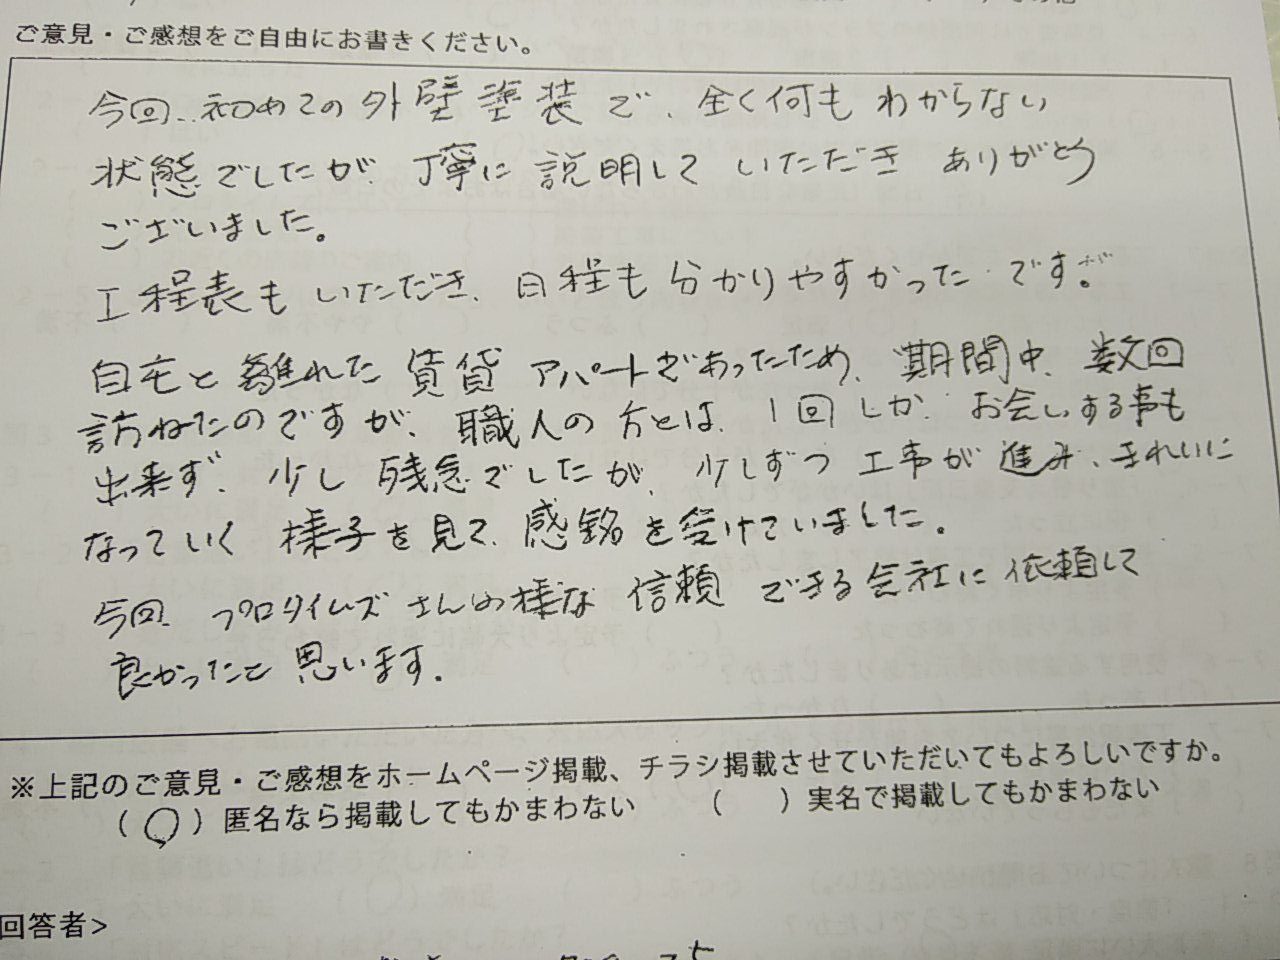 ご意見・ご感想をご自由にお書きください。
今回、初めての外壁塗装で、全く何もわからない
状態でしたが、丁寧に説明していただきありがとう
ございました。
工程表もいただき、日程も分かりやすかったです。
自宅と離れた賃貸アパートであったため、期間中、数回
訪ねたのですが、職人の方とは、1回しか、お会いする事も
出来ず、少し残念でしたが、少しずつ工事が進み、きれいに
なっていく様子を見て、感銘を受けていました。
今回、プロタイムズさんの様な信頼できる会社に依頼して
良かったと思います。
※上記のご意見・ご感想をホームページ掲載、チラシ掲載させていただいてもよろしいですか。
(○)匿名なら掲載してもかまわない ( )実名で掲載してもかまわない
回答者>